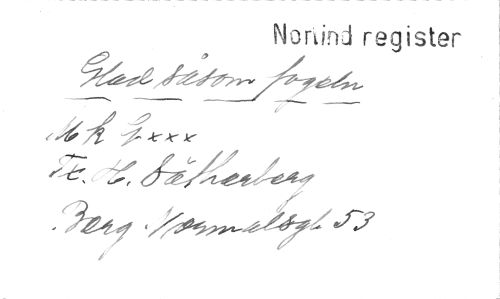 Norlind register
Glad såsom fogeln
M.k G xxx
Tx. H. Sätherberg
Berg. Normalsgb. 53